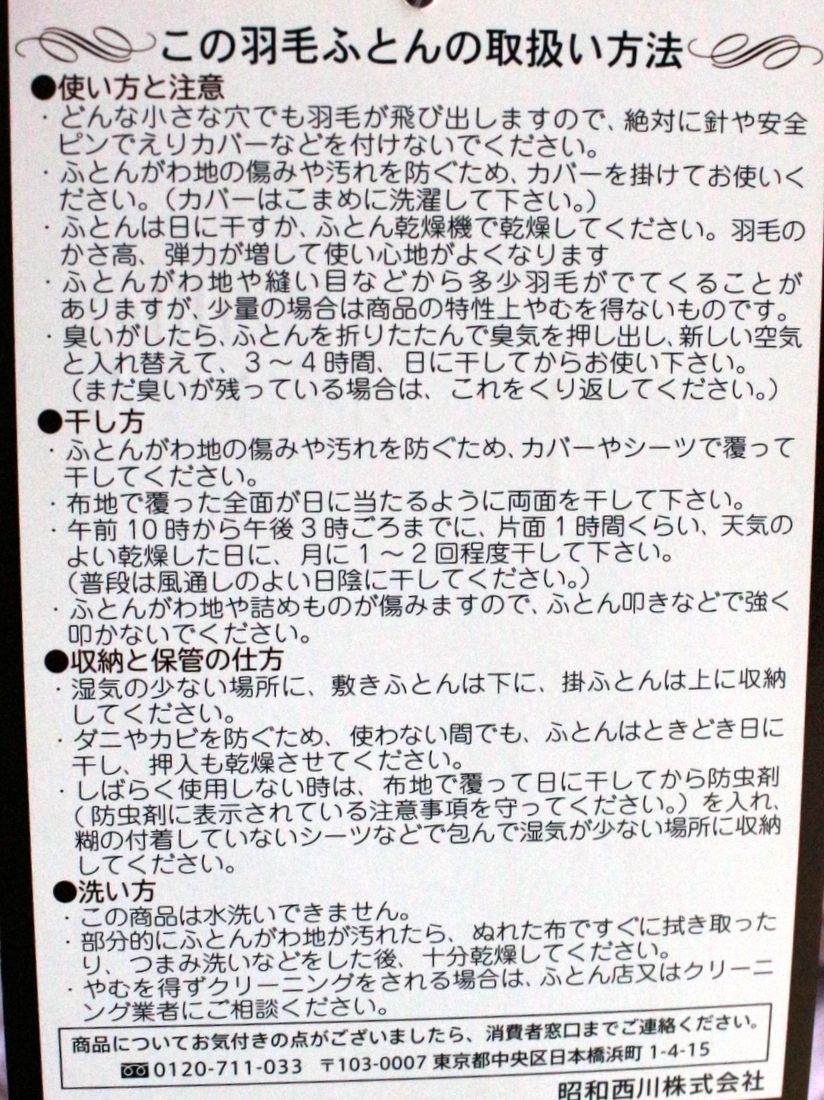 この羽毛ふとんの取扱い方法
●使い方と注意
・どんな小さな穴でも羽毛が飛び出しますので、絶対に針や安全
ピンでえりカバーなどを付けないでください。
・ふとんがわ地の傷みや汚れを防ぐため、カバーを掛けてお使いく
ださい。（カバーはこまめに洗濯して下さい。）
・ふとんは日に干すか、ふとん乾燥機で乾燥してください。羽毛の
かさ高、弾力が増して使い心地がよくなります
・ふとんがわ地や縫い目などから多少羽毛がでてくることが
ありますが、少量の場合は商品の特性上やむを得ないものです。
・臭いがしたら、ふとんを折りたたんで臭気を押し出し、新しい空気
と入れ替えて、3～4時間、日に干してからお使い下さい。
（まだ臭いが残っている場合は、これをくり返してください。）
●干し方
・ふとんがわ地の傷みや汚れを防ぐため、カバーやシーツで覆って
干してください。
・布地で覆った全面が日に当たるように両面を干して下さい。
・午前10時から午後3時ごろまでに、片面1時間くらい、天気の
よい乾燥した日に、月に1～2回程度干して下さい。
（普段は風通しのよい日陰に干してください。）
・ふとんがわ地や詰めものが傷みますので、ふとん叩きなどで強く
叩かないでください。
●収納と保管の仕方
・湿気の少ない場所に、敷きふとんは下に、掛ふとんは上に収納
してください。
・ダニやカビを防ぐため、使わない間でも、ふとんはときどき日に
干し、押入も乾燥させてください。
・しばらく使用しない時は、布地で覆って日に干してから防虫剤
（防虫剤に表示されている注意事項を守ってください。）を入れ、
糊の付着していないシーツなどで包んで湿気が少ない場所に収納
してください。
●洗い方
・この商品は水洗いできません。
・部分的にふとんがわ地が汚れたら、ぬれた布ですぐに拭き取った
り、つまみ洗いなどをした後、十分乾燥してください。
・やむを得ずクリーニングをされる場合は、ふとん店又はクリーニ
ング業者にご相談ください。
商品についてお気付きの点がございましたら、消費者窓口までご連絡ください。
0120-711-033 〒103-0007 東京都中央区日本橋浜町1-4-15
昭和西川株式会社